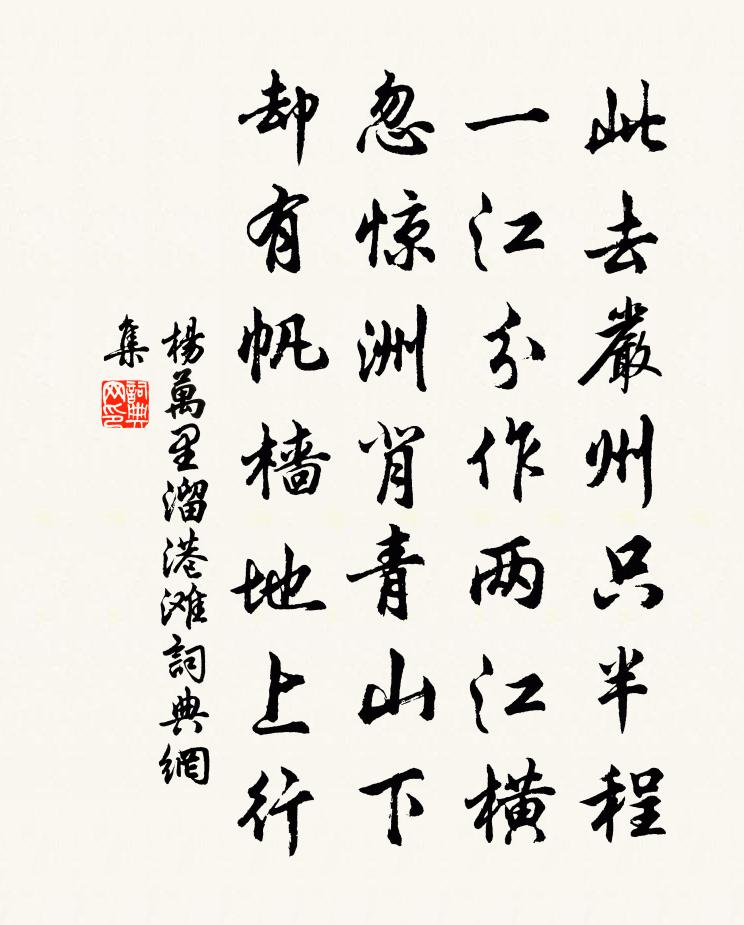 此去嚴州只半程
一江分作两江横
忽惊洲背青山下
却有帆樯地上行
楊萬里溜港滩詞典網
集
詞典
网印